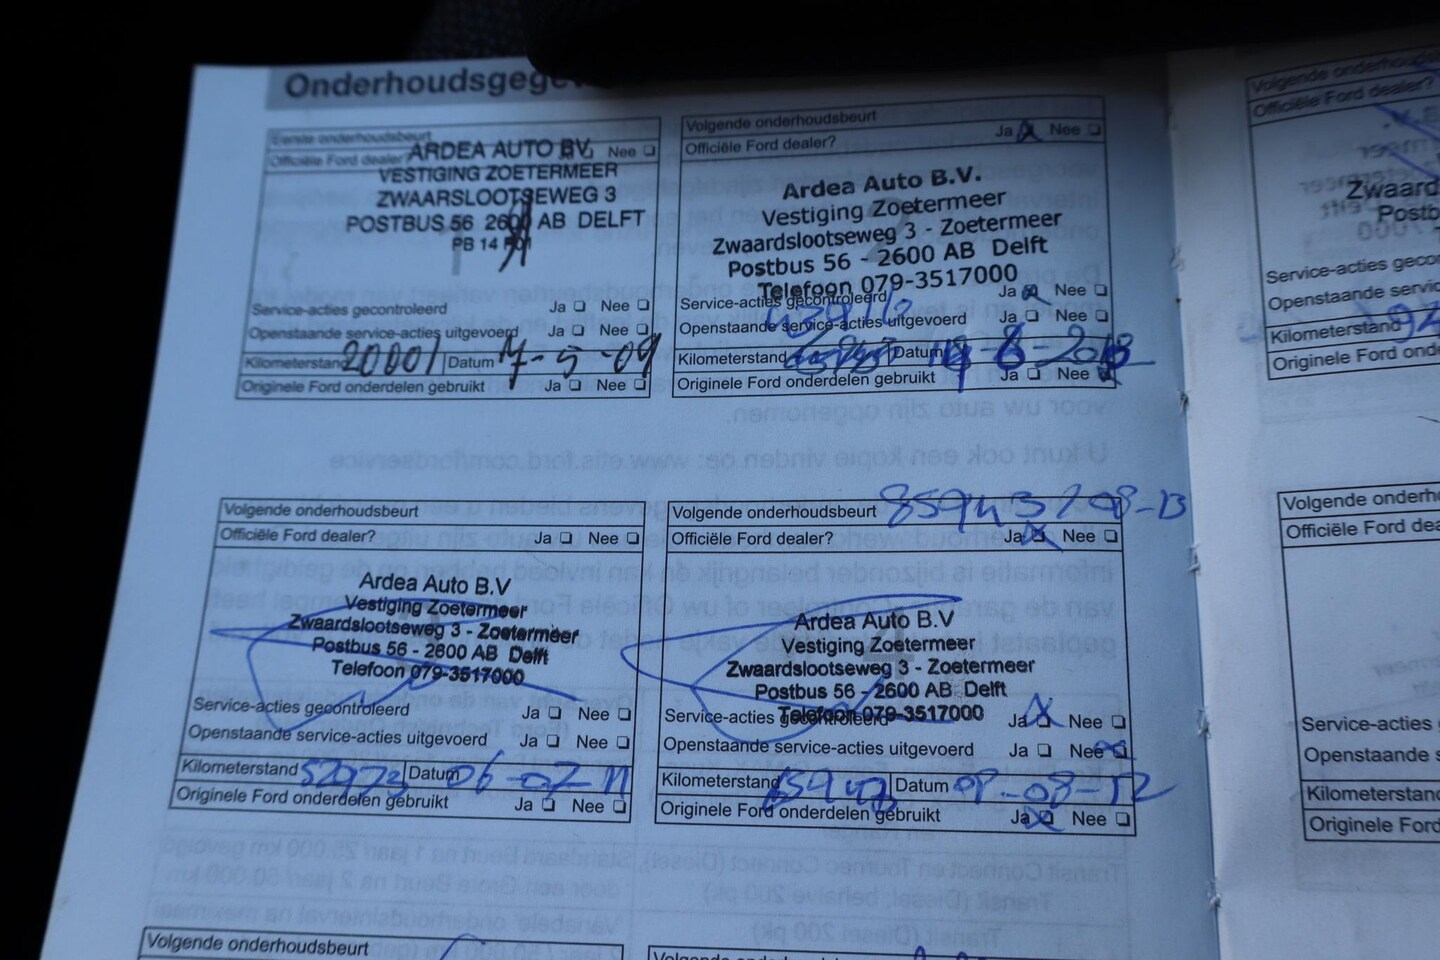 Onderhoudsgege
Eerste onderhoudsbeurt
Officiële Ford dealer Nee
ARDEA AUTO BV.
VESTIGING ZOETERMEER
ZWAARSLOOTSEWEG 3
POSTBUS 56 2600 AB DELFT
PB 14
Service-acties gecontroleerd Ja Nee
Openstaande service-acties uitgevoerd Ja Nee
Kilometerstand 20001 Datum 7-5-09
Originele Ford onderdelen gebruikt Ja Nee
Volgende onderhoudsbeurt
Officiële Ford dealer? Ja Nee
Ardea Auto B.V.
Vestiging Zoetermeer
Zwaardslootseweg 3 - Zoetermeer
Postbus 56 - 2600 AB Delft
Telefoon 079-3517000
Service-acties gecontroleerd Ja Nee
Openstaande service-acties uitgevoerd Ja Nee
Kilometerstand Datum
Originele Ford onderdelen gebruikt Ja Nee
Volgende onderhoudsbeurt
Officiële Ford dealer? Ja Nee
Ardea Auto B.V
Vestiging Zoetermeer
Zwaardslootseweg 3 - Zoetermeer
Postbus 56 - 2600 AB Delft
Telefoon 079-3517000
Service-acties gecontroleerd Ja Nee
Openstaande service-acties uitgevoerd Ja Nee
Kilometerstand 52973 Datum 06-07-11
Originele Ford onderdelen gebruikt Ja Nee
Volgende onderhoudsbeurt
Officiële Ford dealer? Ja Nee
Ardea Auto B.V
Vestiging Zoetermeer
Zwaardslootseweg 3 - Zoetermeer
Postbus 56 - 2600 AB Delft
Telefoon 079-3517000
Service-acties gecontroleerd Ja Nee
Openstaande service-acties uitgevoerd Ja Nee
Kilometerstand Datum -08-12
Originele Ford onderdelen gebruikt Ja Nee
Volgende onderhoudsbeurt
Volgende onderhoudsbeurt
Volgende onderhoudsbeu
Officiële Ford dealer?
Zwaard
Postb
Service-acties gecon
Openstaande servic
Kilometerstand
Originele Ford onde
Volgende onderh
Officiële Ford dea
Service-acties
Openstaande s
Kilometerstand
Originele Ford